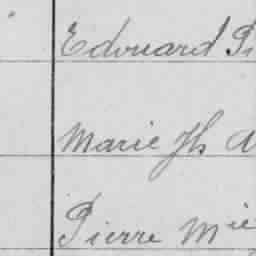 Edouard Pi
Marie Jh A
Pierre Mie